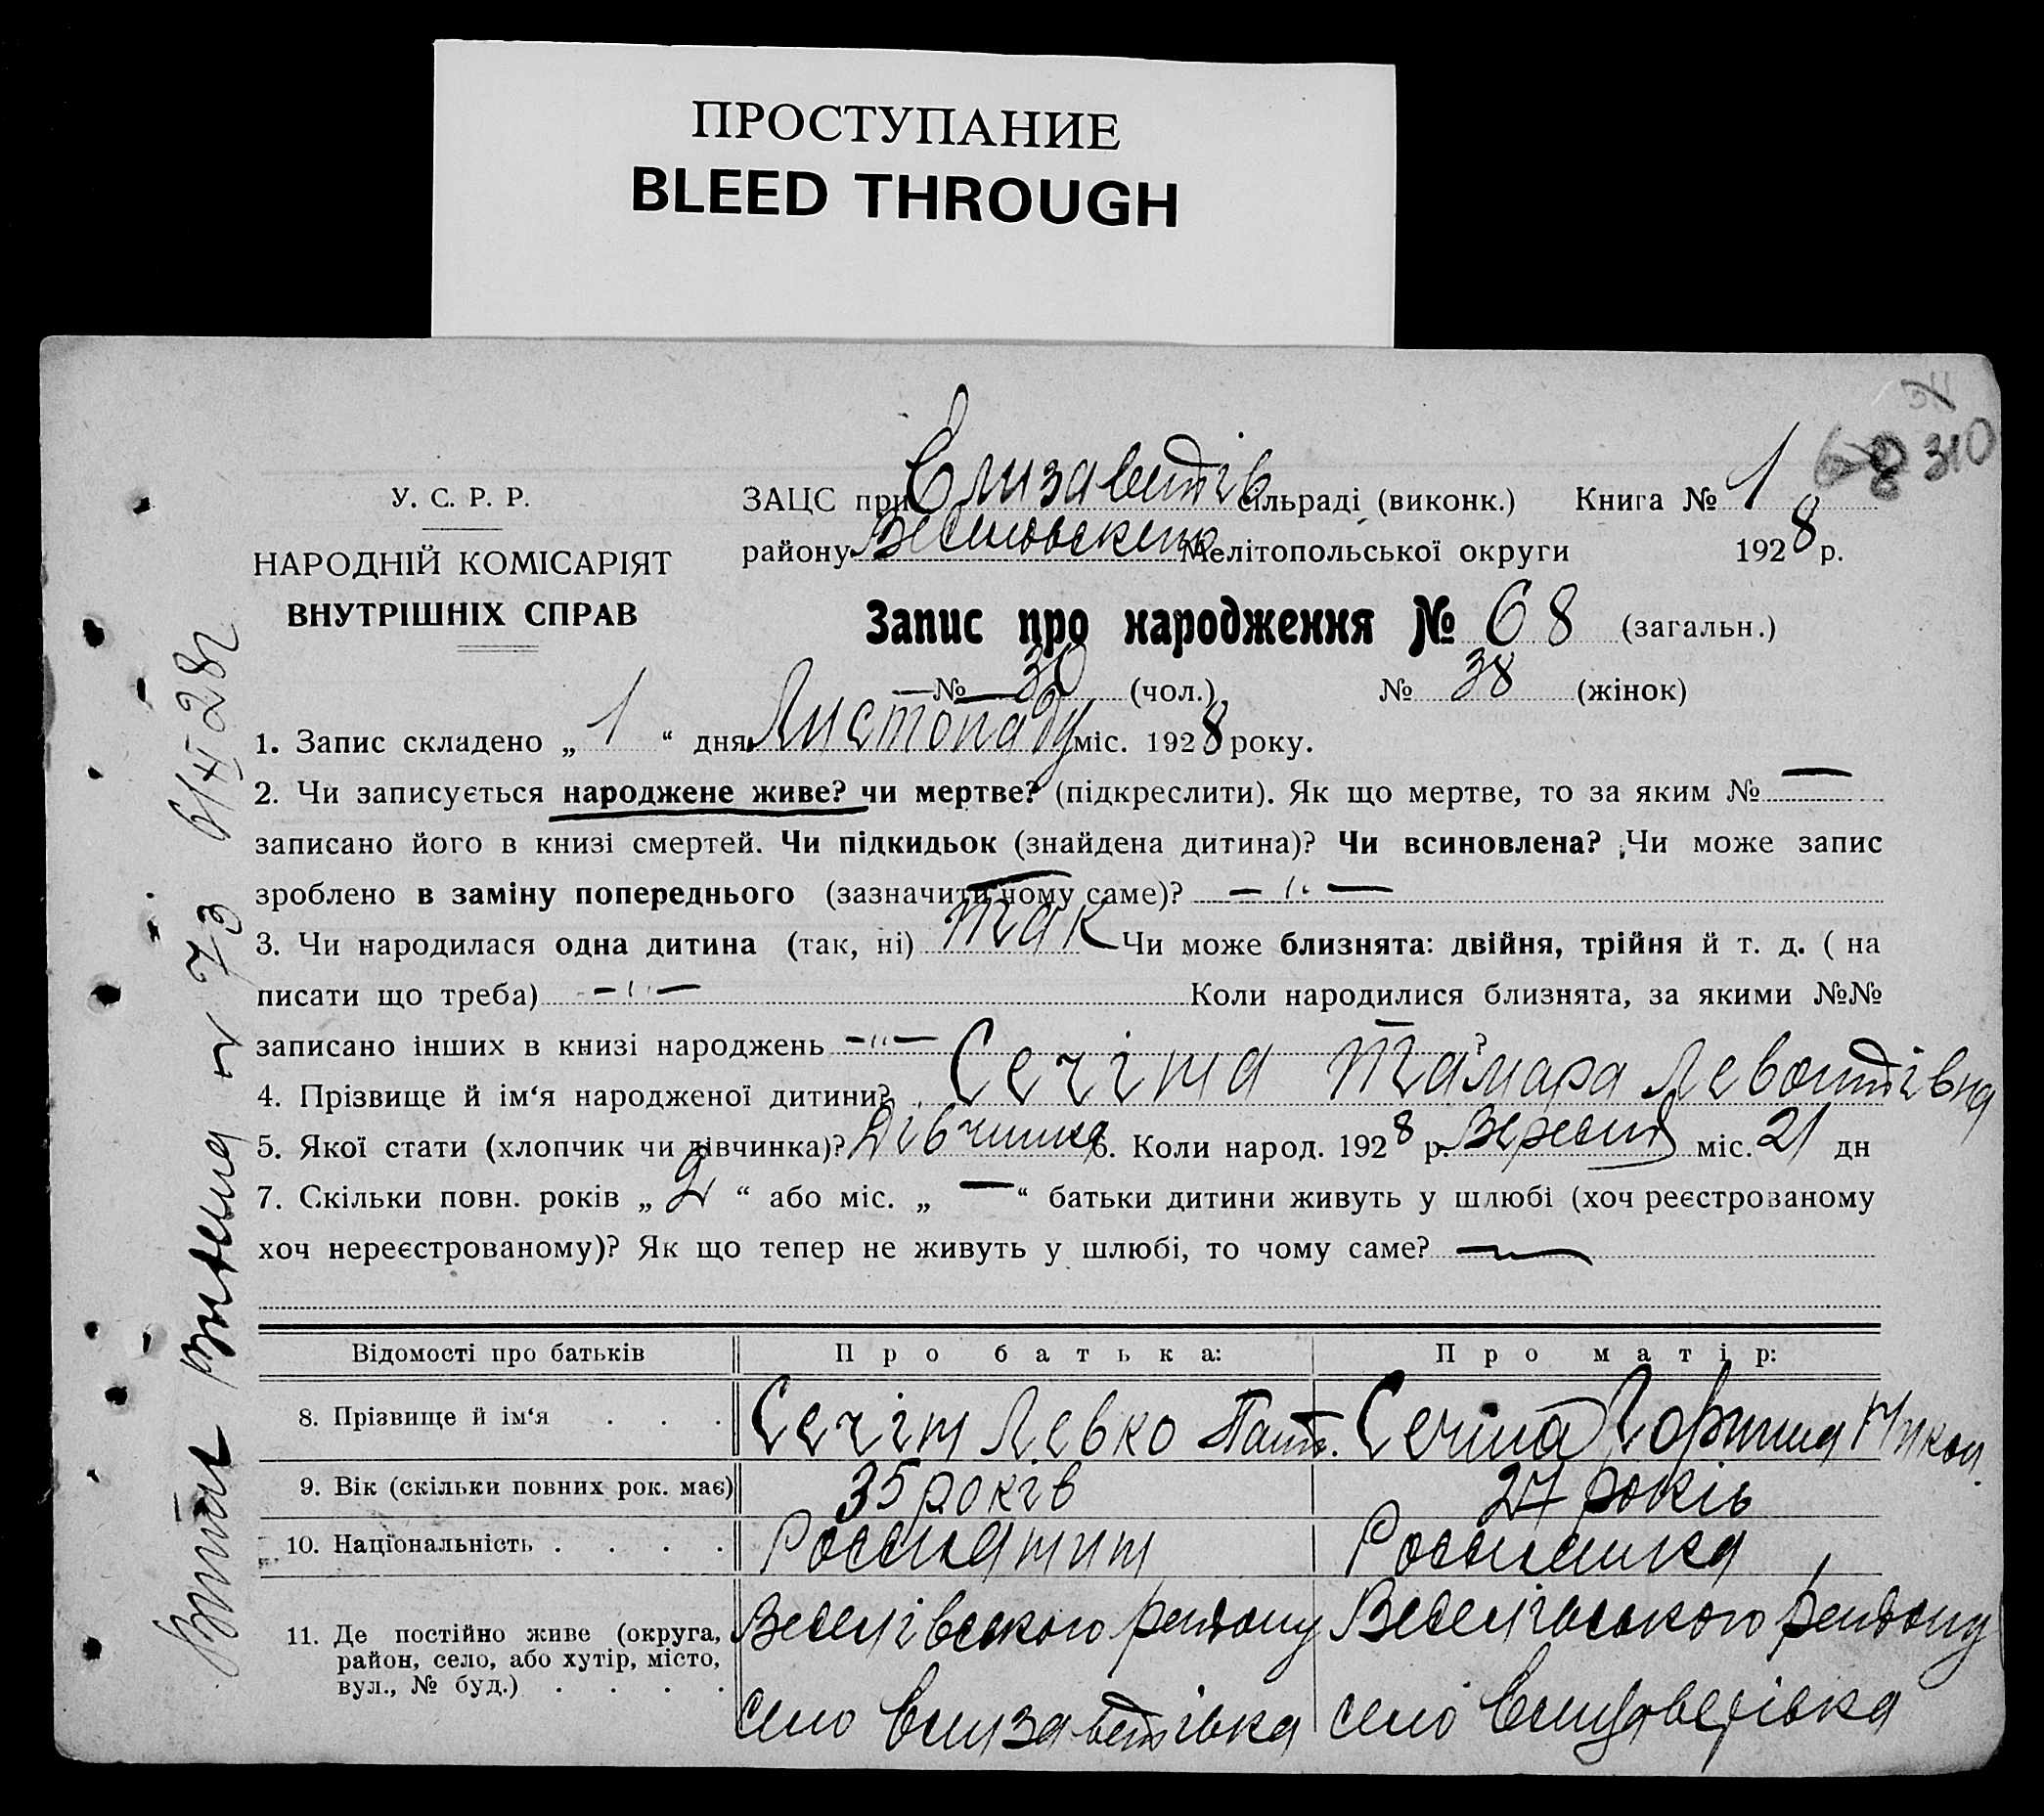 ПРОСТУПАНИЕ
BLEED THROUGH
68 310
У. С. Р. Р.
НАРОДНІЙ КОМІСАРІЯТ
ВНУТРІШНІХ СПРАВ
ЗАЦС при Елизаветів сільраді (виконк.) Книга № 1
району Мелітопольської округи 1928 р.
Запис про народження № 68 (загальн.)
№ 30 (чол.) № 38 (жінок)
1. Запис складено „ 1 “ дня Листопаду міс. 1928 року.
2. Чи записується народжене живе? чи мертве? (підкреслити). Як що мертве, то за яким № —
записано його в книзі смертей. Чи підкидьок (знайдена дитина)? Чи всиновлена? Чи може запис
зроблено в заміну попереднього (зазначити чому саме)? — „ —
3. Чи народилася одна дитина (так, ні) Так Чи може близнята: двійня, трійня й т. д. ( на
писати що треба) — „ — Коли народилися близнята, за якими №№
записано інших в книзі народжень — „ — ?
4. Прізвище й ім‘я народженої дитини? Сечіна Тамара
5. Якої стати (хлопчик чи дівчинка)? Дівчинка 6. Коли народ. 1928 р. Вересня міс. 21 дн
7. Скільки повн. років „ 2 “ або міс. „ — “ батьки дитини живуть у шлюбі (хоч реєстрованому
хоч нереєстрованому)? Як що тепер не живуть у шлюбі, то чому саме? —
Відомості про батьків Про батька: Про матір:
8. Прізвище й ім‘я . . . Сечін Левко Сечина
9. Вік (скільки повних рок. має) 35 років 27 років
10. Національність . . . . Россиянин Россиянка
11. Де постійно живе (округа, Веселівського району Веселівського району
район, село, або хутір, місто,
вул., № буд.) . . . . село Елизаветівка село Елизаветівка